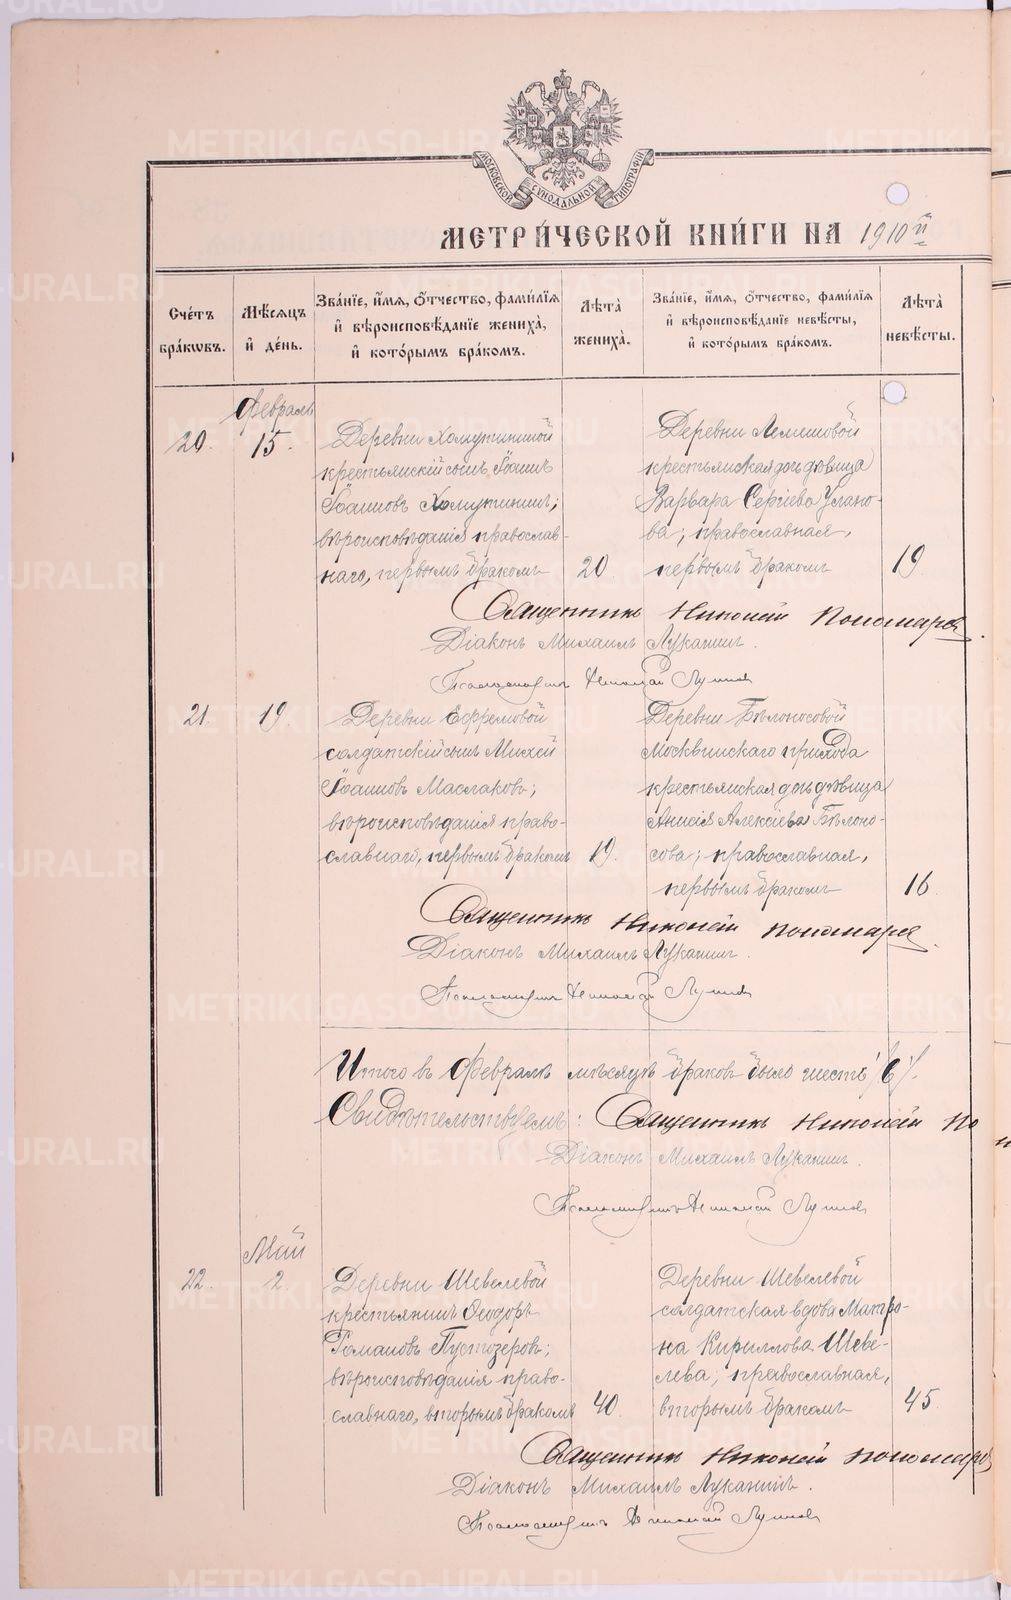 МОСКОВСКОЙ СѴНОДАЛЬНОЙ ТИПОГРАФІИ
МЕТРИ́ЧЕСКОЙ КНИ́ГИ НА 1910й
Сче́тъ бра́ковъ.
Мѣ́сяцъ и҆ де́нь.
Зва́нїе, и҆́мѧ, ѻ҆́тчество, фами́лїѧ
и҆ вѣроисповѣ́данїе жениха̀,
и҆ кото́рымъ бра́комъ.
Лѣ́та̀ жениха̀.
Зва́нїе, и҆́мѧ, ѻ҆́тчество, фами́лїѧ
и҆ вѣроисповѣ́данїе невѣ́сты,
и҆ кото́рымъ бра́комъ.
Лѣ́та̀ невѣ́сты.
Февраль
20. 15.
Деревни Хомутининой
крестьянскій сынъ Іоаннъ
Іоанновъ Хомутининъ;
вѣроисповѣданія православ-
наго, первымъ бракомъ
20
Деревни Лемешовой
крестьянская дочь дѣвица
Варвара Сергіева Улано-
ва; православная,
первымъ бракомъ
19
Священникъ Николай Пономарев
Діаконъ Михаилъ Луканинъ.
Псаломщикъ Николай
21. 19.
Деревни Ефремовой
солдатскій сынъ Михей
Іоанновъ Маслаковъ;
вѣроисповѣданія право-
славнаго, первымъ бракомъ
19.
Деревни Бѣлоносовой
Москвинскаго прихода
крестьянская дочь дѣвица
Анисія Алексіева Бѣлоно-
сова; православная,
первымъ бракомъ
16
Священникъ Николай Пономарев
Діаконъ Михаилъ Луканинъ.
Псаломщикъ Николай
Итого въ Февралѣ мѣсяцѣ браковъ было шесть /6/.
Свидѣтельствуемъ: Священникъ Николай По
Діаконъ Михаилъ Луканинъ.
Псаломщикъ Николай
Май
22. 2.
Деревни Шевелевой
крестьянинъ Ѳеодоръ
Романовъ Пустозеровъ;
вѣроисповѣданія право-
славнаго, вторымъ бракомъ
40
Деревни Шевелевой
солдатская вдова Матро-
на Кириллова Шеве-
лева; православная,
вторымъ бракомъ
45.
Священникъ Николай Пономаре
Діаконъ Михаилъ Луканинъ.
Псаломщикъ Николай
METRIKI.GASO-URAL.RU